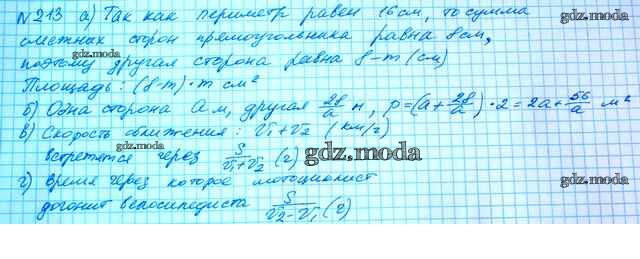 №213 а) Так как периметр равен 16 см, то сумма
смежных сторон прямоугольника равна 8 см,
поэтому другая сторона равна 8-m (см)
Площадь: (8-m)·m см²
б) Одна сторона a м, другая 28/a м, p=(a+28/a)·2=2a+56/a м²
в) Скорость сближения: v₁+v₂ (км/ч)
встретятся через S/(v₁+v₂) (ч)
г) время через которое мотоциклист
догонит велосипедиста S/(v₂-v₁) (ч)
gdz.moda
gdz.moda
gdz.moda
gdz.moda
gdz.moda
gdz.moda
gdz.moda